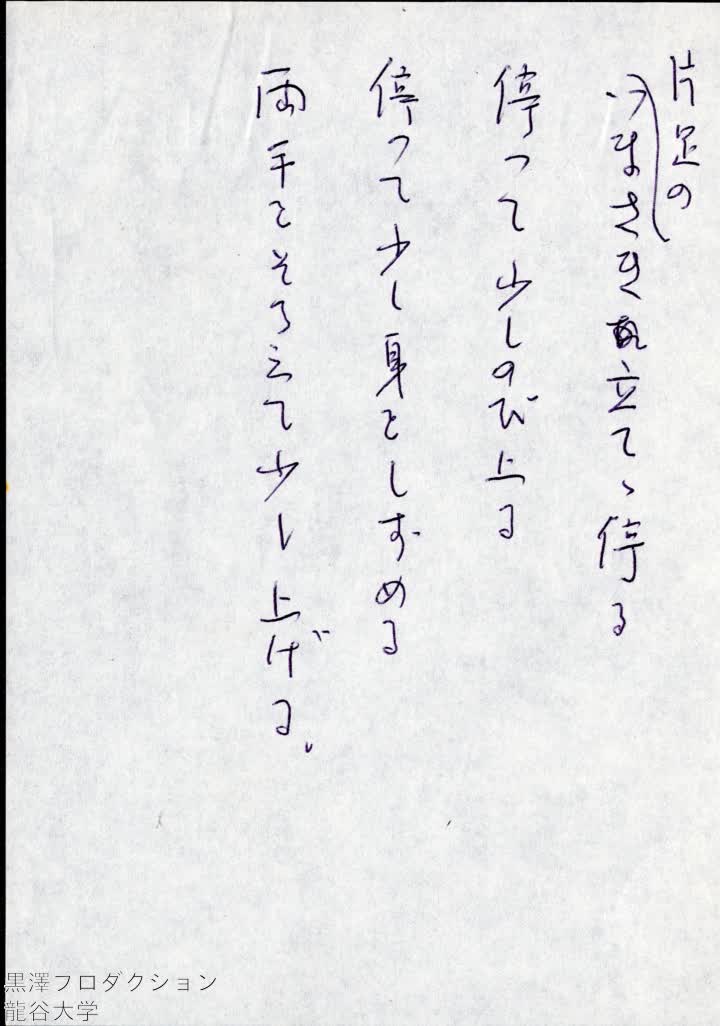 片足の
つまさき立てゝ停る
停って少しのび上る
停って少し身をしずめる
両手をそろえて少し上げる。
黒澤プロダクション
龍谷大学